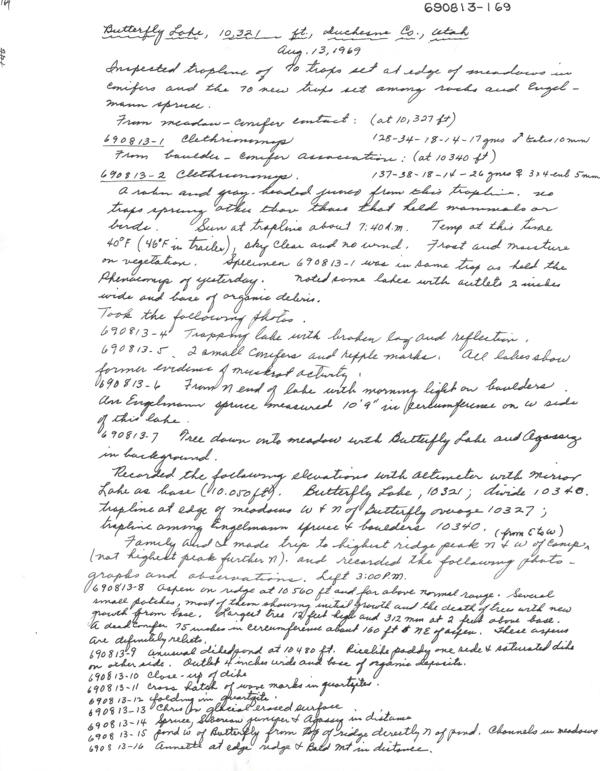 690813-169
Butterfly Lake, 10,321 ft., Duchesne Co., Utah
Aug. 13, 1969
Inspected trapline of 70 traps set at edge of meadows in
conifers and the 70 new traps set among rocks and Engel-
mann spruce.
From meadow-conifer contact: (at 10,327 ft)
690813-1 Clethrionomys 128-34-18-14-17 gms ♂ testes 10 mm
From boulder-conifer association: (at 10340 ft)
690813-2 Clethrionomys. 137-38-18-14-26 gms ♀ 3x4 emb 5mm
A robin and gray-headed junco from this trapline. no
traps sprung other than those that held mammals or
birds. Sun at trapline about 7:40 A.M. Temp at this time
40°F (46°F in trailer), sky clear and no wind. Frost and moisture
on vegetation. Specimen 690813-1 was in same trap as held the
Phenacomys of yesterday. Noted some lakes with outlets 2 inches
wide and base of organic debris.
Took the following photos.
690813-4 Trapping lake with broken log and reflection.
690813-5. 2 small conifers and ripple marks. All lakes show
former evidence of muskrat activity.
690813-6 From N end of lake with morning light on boulders.
An Engelmann spruce measured 10'9" in circumference on W side
of this lake.
690813-7 Tree down onto meadow with Butterfly Lake and Agassiz
in background.
Recorded the following elevations with altimeter with Mirror
Lake as base (10.050 ft). Butterfly Lake, 10321; divide 10340.
trapline at edge of meadows W & N of Butterfly 10327;
trapline among Engelmann spruce & boulders 10340.
(from E to W)
Family and I made trip to highest ridge peak N & W of camp,
(not highest peak further N). and recorded the following photo-
graphs and observations. Left 3:00 P.M.
690813-8 Aspen on ridge at 10560 ft and far above normal range. Several
small patches, most of them showing initial growth and the death of trees with new
growth from base. Largest tree 12 feet high and 312 mm at 2 feet above base.
A dead conifer 75 inches in circumference about 160 ft NE of aspen. These aspens
are definitely relicts.
690813-9 Unusual diked pond at 10480 ft. Ricelike paddy one side & saturated dike
on other side. Outlet 4 inches wide and base of organic deposits.
690813-10 Close-up of dike
690813-11 Cross hatch of wave marks in quartzites.
690813-12 folding in quartzite.
690813-13 Chris on glacial erased surface.
690813-14 Spruce, Siberian juniper & Agassiz in distance
690813-15 pond W of Butterfly from top of ridge directly N of pond. Channels in meadows
690813-16 Annette at edge ridge & Bald Mt in distance.